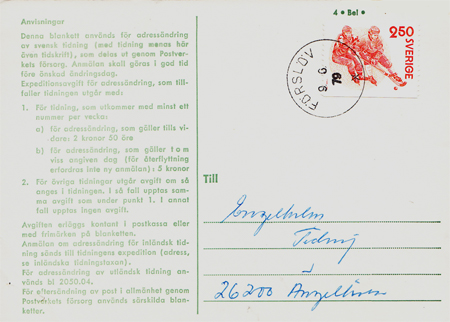 Anvisningar
Denna blankett används för adressändring
av svensk tidning (med tidning menas här
även tidskrift), som delas ut genom Postver-
kets försorg. Anmälan skall göras i god tid
före önskad ändringsdag.
Expeditionsavgift för adressändring, som till-
faller tidningen utgår med:
1. För tidning, som utkommer med minst ett
nummer per vecka:
a) för adressändring, som gäller tills vi-
dare: 2 kronor 50 öre
b) för adressändring, som gäller t o m
viss angiven dag (för återflyttning
erfordras inte ny anmälan): 5 kronor
2. För övriga tidningar utgår avgift om så
anges i tidningen. I så fall upptas samma
avgift som under punkt 1. I annat
fall upptas ingen avgift.
Avgiften erläggs kontant i postkassa eller
med frimärken på blanketten.
Anmälan om adressändring för inländsk tid-
ning sänds till tidningens expedition (adress,
se inländska tidningstaxan).
För adressändring av utländsk tidning an-
vänds bl 2050.04.
För eftersändning av post i allmänhet genom
Postverkets försorg används särskilda blan-
ketter.
4 • Bel •
250
SVERIGE
FÖRSLÖV
79
Till
Engelholms
Tidning
26200 Ängelholm